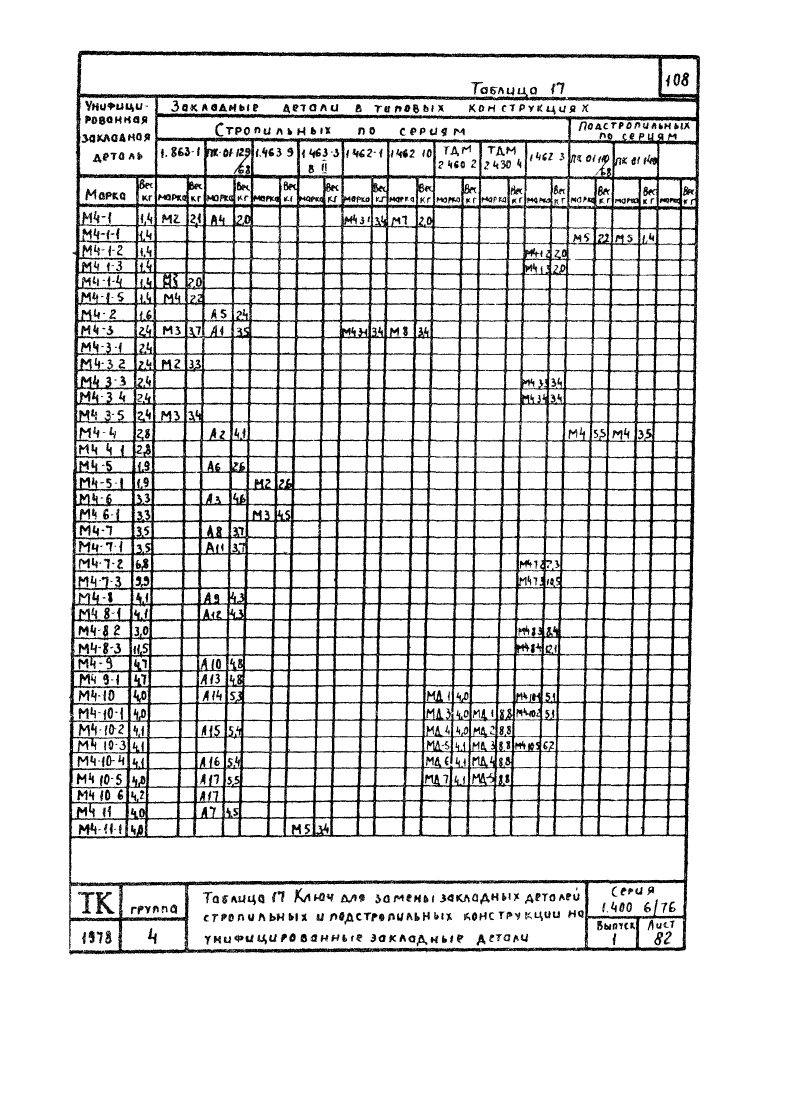 108
Таблица 17
Унифици-
рованная
закладная
деталь
Закладные детали в типовых конструкциях
Стропильных по сериям
Подстропильных
по сериям
1.863-1 ПК-01-129/68 1.463 9 1 463-3 в II 1 462-1 1462 10 ТДМ 2 460 2 ТДМ 2 430 4 1 462 3 ПК 01 110/68 ПК 01 140
Марка Вес кг марка Вес кг марка Вес кг марка Вес кг марка Вес кг марка Вес кг марка Вес кг марка Вес кг марка Вес кг марка Вес кг марка Вес кг марка Вес кг марка Вес кг
М4-1 1,4 М2 2,1 А4 2,0 М4 3-1 3,4 М7 2,0
М4-1-1 1,4 М5 2,2 М5 1,4
М4-1-2 1,4 М4 1 2 2,0
М4 1-3 1,4 М4 1 3 2,0
М4-1-4 1,4 2,0
М4-1-5 1,4 М4 2,2
М4-2 1,6 А5 2,4
М4-3 2,4 М3 3,7 А1 3,5 М4 3-1 3,4 М8 3,4
М4-3-1 2,4
М4-3 2 2,4 М2 3,3
М4 3-3 2,4 М4 3 3 3,4
М4-3 4 2,4 М4 3 4 3,4
М4 3-5 2,4 М3 3,4
М4-4 2,8 А2 4,1 М4 5,5 М4 3,5
М4 4 1 2,8
М4-5 1,9 А6 2,6
М4-5-1 1,9 М2 2,6
М4-6 3,3 А3 4,6
М4 6-1 3,3 М3 4,5
М4-7 3,5 А8 3,7
М4-7-1 3,5 А11 3,7
М4-7-2 6,8 М4 7 2 7,3
М4-7-3 9,9 М4 7 3 10,5
М4-8 4,1 А9 4,3
М4 8-1 4,1 А12 4,3
М4-8 2 3,0 М4 8 3 8,4
М4-8-3 11,5 М4 8 4 12,1
М4-9 4,7 А10 4,8
М4 9-1 4,7 А13 4,8
М4-10 4,0 А14 5,3 МД 1 4,0 М4-10-1 5,1
М4-10-1 4,0 МД 3 4,0 МД 1 8,8 М4-10 2 5,1
М4-10-2 4,1 А15 5,4 МД 4 4,0 МД 2 8,8
М4 10-3 4,1 МД-5 4,1 МД 3 8,8 М4 10 5 6,2
М4-10-4 4,1 А16 5,4 МД 6 4,1 МД 4 8,8
М4 10-5 4,0 А17 5,5 МД 7 4,1 МД-5 8,8
М4 10 6 4,2 А17
М4 11 4,0 А7 4,5
М4-11-1 4,0 М5 3,4
ТК
группа
1978
4
Таблица 17 Ключ для замены закладных деталей
стропильных и подстропильных конструкции на
унифицированные закладные детали
Серия
1.400 6/76
Выпуск
1
Лист
82